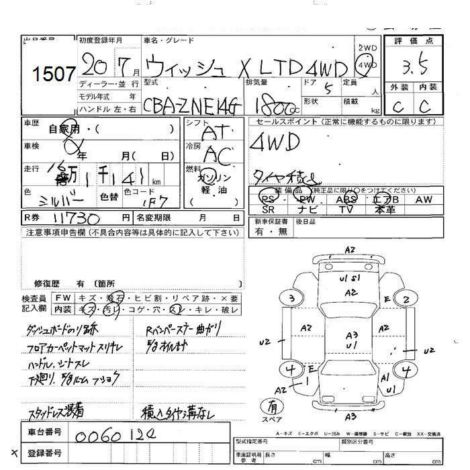 出品番号 初度登録年月 車名・グレード 2WD 4WD 評価点
1507 20年7月 ウィッシュ X LTD 4WD 3.5
ディーラー・並行 型式 排気量 ドア 5 定員 人 外装 内装
モデル年式 年 CBA-ZNE14G 1800cc 形状 積載 kg C C
ハンドル 左・右
車歴 自家用・( ) シフト AT セールスポイント(正常に機能するものに限ります)
車検 年 月( 日) 冷房 AC 4WD
走行 万 千 km 燃料 ガソリン 軽油 ( ) タイヤ積込
色 シルバー 色替 色コード 1F7 装備品(純正品に限り○をつけてください)
PS PW ABS エアB AW
SR ナビ TV 本革
R券 11730 円 名変期限 月 日 新車保証書 有・無 後日品
注意事項申告欄(不具合内容等は具体的に記入して下さい)
修復歴 有 (箇所
検査員記入欄 FW キズ・飛石・ヒビ割・リペア跡・×要
内装 キズ・汚レ・コゲ・穴・スレ・キレ・破レ
ダッシュボードのり跡 Rバンパーステー曲がり
フロアカーペットマットスリキレ
ハンドル、シートスレ
スタッドレス装着 積込タイヤ溝なし
車台番号 0060124
登録番号
A2
U1 S1
A2
3 E 2
A2 A3 U1 A2
U2 U2
4 E 4
A2 1 A1 U1
A3
有
スペア
型式指定番号 類別区分番号
車庫証明用参考 長さ cm 幅 cm 高さ cm